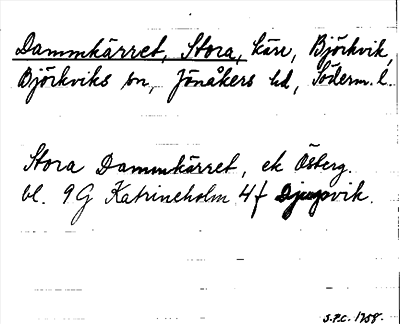 Dammkärret, Stora, kärr, Björkvik,
Björkviks sn, Jönåkers hd, Söderm. l.
Stora Dammkärret, ek Österg.
bl. 9G Katrineholm 4f Djupvik.
S.P.C. 1958.